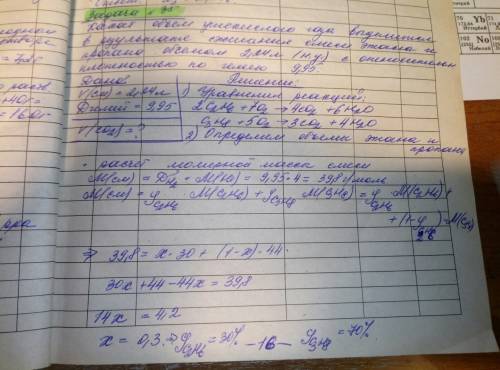 Задача № 35
Какой объём углекислого газа выделится
в результате сжигания смеси этана и
пропана объёмом 2,24л (н.у.) с относительной
плотностью по гелию 9,95.
Дано Решение:
V(см) = 2,24л 1) Уравнения реакций:
Dгелий = 9,95 2C2H6 + 7O2 → 4CO2 + 6H2O
V(CO2) = ? C3H8 + 5O2 → 3CO2 + 4H2O
2) Определим объёмы этана и пропана
расчёт молярной массы смеси
M(см) = D · M(He) = 9,95 · 4 = 39,8 г/моль
M(см) = φC2H6 · M(C2H6) + φC3H8 · M(C3H8) = φC2H6 · M(C2H6) +
+ (1-φC2H6)
⇒ 39,8 = x · 30 + (1-x) · 44
30x + 44 - 44x = 39,8
14x = 4,2
x = 0,3 ⇒ φC2H6 = 30% φC3H8 = 70%
-16-
70 Yb
102